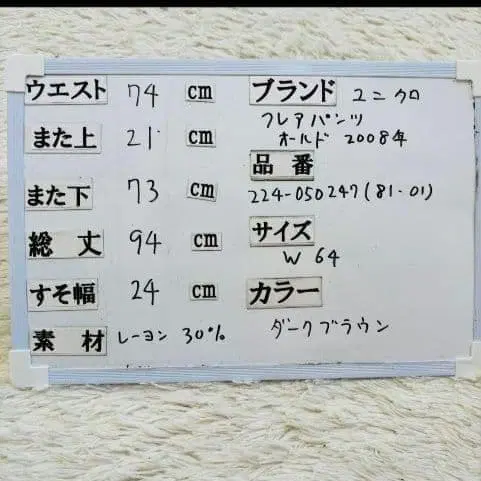 ウエスト 74 cm
また上 21 cm
また下 73 cm
総丈 94 cm
すそ幅 24 cm
素材 レーヨン 30%
ブランド ユニクロ
フレアパンツ
オールド 2008年
品番
224-050247(81-01)
サイズ
W 64
カラー
ダークブラウン